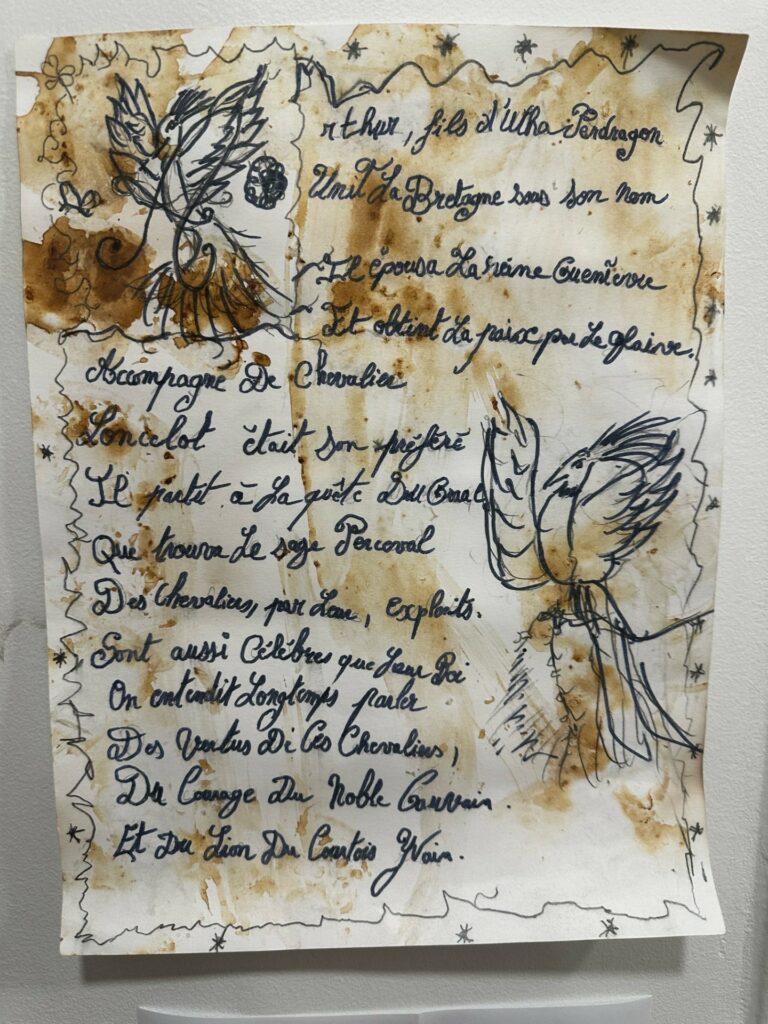 rthur, fils d'Utha Pendragon
Unit La Bretagne sous son nom
Il épousa La reine Guenièvre
Et obtint La paix par Le glaive.
Accompagne De Chevalier
Lancelot était son préféré
Il partit à La quête Du Graal
Que trouva Le sage Perceval
Des Chevaliers, par Leur, exploits.
Sont aussi Célèbres que Leur Roi
On entendit Longtemps parler
Des Vertus De Ces Chevaliers,
Du Courage Du Noble Gauvain.
Et Du Lion Du Courtois Yvain.